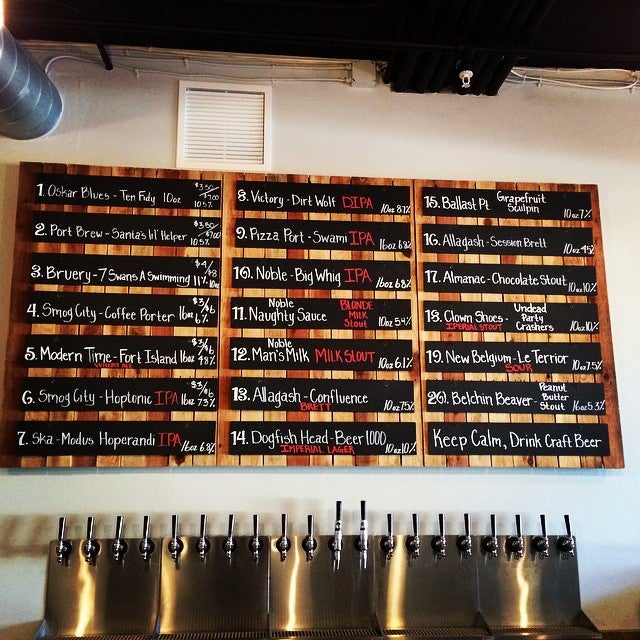 1. Oskar Blues - Ten Fidy 10oz $3.50 10.5%
2. Port Brew - Santa's lil' Helper $3.50 10.5%
3. Bruery - 7 Swans A Swimming $4/$8 11% 10oz
4. Smog City - Coffee Porter 16oz $3/$6 6%
5. Modern Time - Fort Island 16oz $3/$6 4.8%
WHEAT ALE
6. Smog City - Hoptonic IPA 16oz $3/$6 7.3%
7. Ska - Modus Hoperandi IPA 16oz 6.8%
8. Victory - Dirt Wolf DIPA 10oz 8.7%
9. Pizza Port - Swami IPA 16oz 6.8%
10. Noble - Big Whig IPA 16oz 6.8%
11. Noble Naughty Sauce BLONDE MILK STOUT 10oz 5.4%
12. Noble Man's Milk MILK STOUT 10oz 6.1%
13. Allagash - Confluence 10oz 7.5%
BRETT
14. Dogfish Head - Beer 1000 10oz 10%
IMPERIAL LAGER
15. Ballast Pt. Grapefruit Sculpin 10oz 7%
16. Allagash - Session Brett 10oz 4.5%
17. Almanac - Chocolate Stout 10oz 10%
18. Clown Shoes - Undead Party Crashers 10oz 10%
IPERIAL STOUT
19. New Belgium - Le Terrior 10oz 7.5%
SOUR
20. Belchin Beaver - Peanut Butter Stout 16oz 5.3%
Keep Calm, Drink Craft Beer